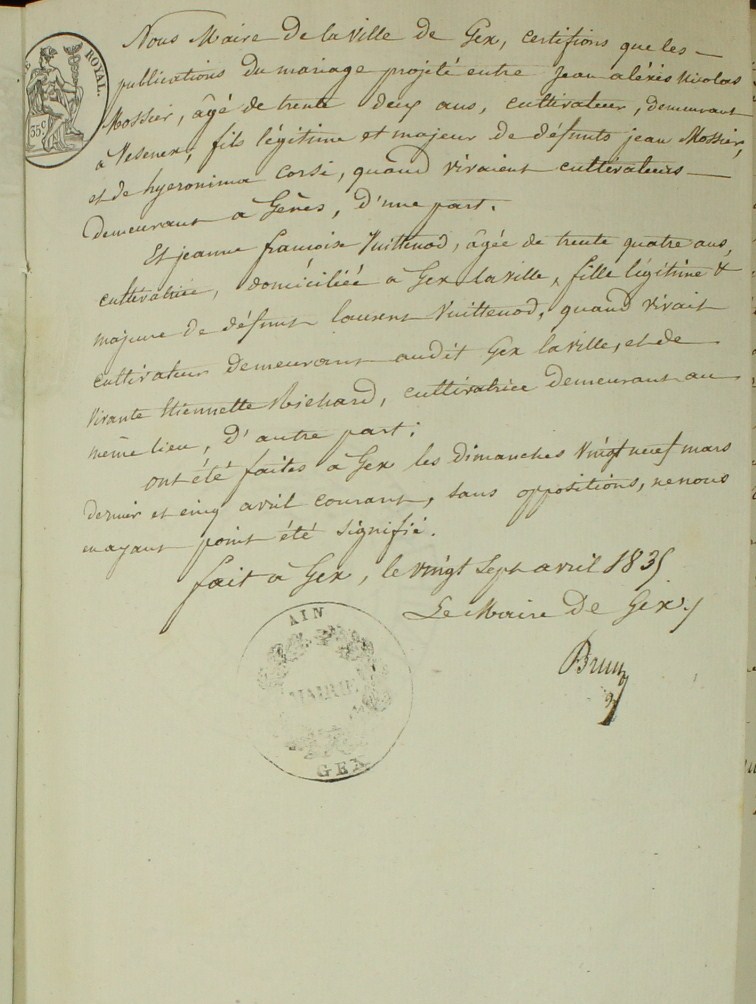 ROYAL.
35c
Nous Maire de la ville de Gex, certifions que les
publications du mariage projeté entre Jean aléxis Nicolas
Mossier, âgé de trente deux ans, cultivateur, demeurant
à Vesenex, fils légitime et majeur de défunts jean Mossier,
et de hyeronima Corsi, quand vivaient cultivateurs
demeurant à Gênes, d'une part.
Et jeanne françoise Vuittenod, âgée de trente quatre ans,
cultivatrice, domiciliée à Gex la ville, fille légitime &
majeure de défunt laurent Vuittenod, quand vivait
cultivateur demeurant audit Gex la ville, et de
vivante Etiennette Richard, cultivatrice demeurant au
même lieu, d'autre part;
ont été faites à Gex les dimanches vingt neuf mars
dernier et cinq avril courant, sans oppositions, ne nous
en ayant point été signifié.
fait à Gex, le vingt sept avril 1835
Le Maire de Gex,
Brun
AIN
MAIRIE
GEX